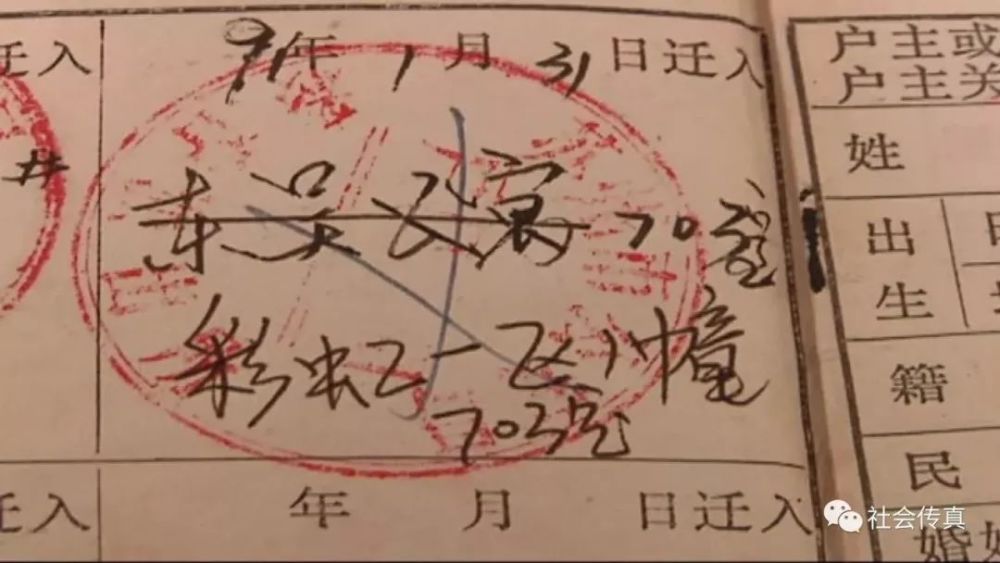 迁入
91年1月31日迁入
井
东吴公寓703室
彩虹一区11幢
703室
迁入
年 月 日迁入
户主或
户主关
姓
出
生
籍
民
婚
社会传真